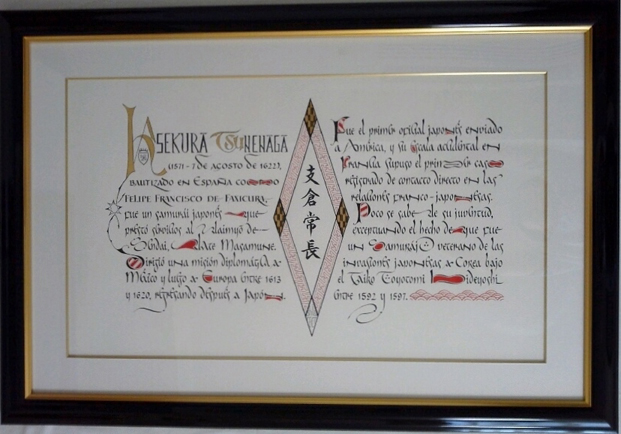 HASEKURA TSUNENAGA
(1571 - 7 DE AGOSTO DE 1622),
BAUTIZADO EN ESPAÑA COMO
FELIPE FRANCISCO DE FAXICURA,
fue un samurái japonés que
prestó servicios al daimyo de
Sendai, Date Masamune.
Dirigió una misión diplomática a
México y luego a Europa entre 1613
y 1620, regresando después a Japón.
支倉常長
Fue el primer oficial japonés enviado
a América, y su escala accidental en
Francia supuso el primer caso
registrado de contacto directo en las
relaciones franco-japonesas.
Poco se sabe de su juventud,
exceptuando el hecho de que fue
un Samurái veterano de las
invasiones japonesas a Corea bajo
el Taiko Toyotomi Hideyoshi
entre 1592 y 1597.